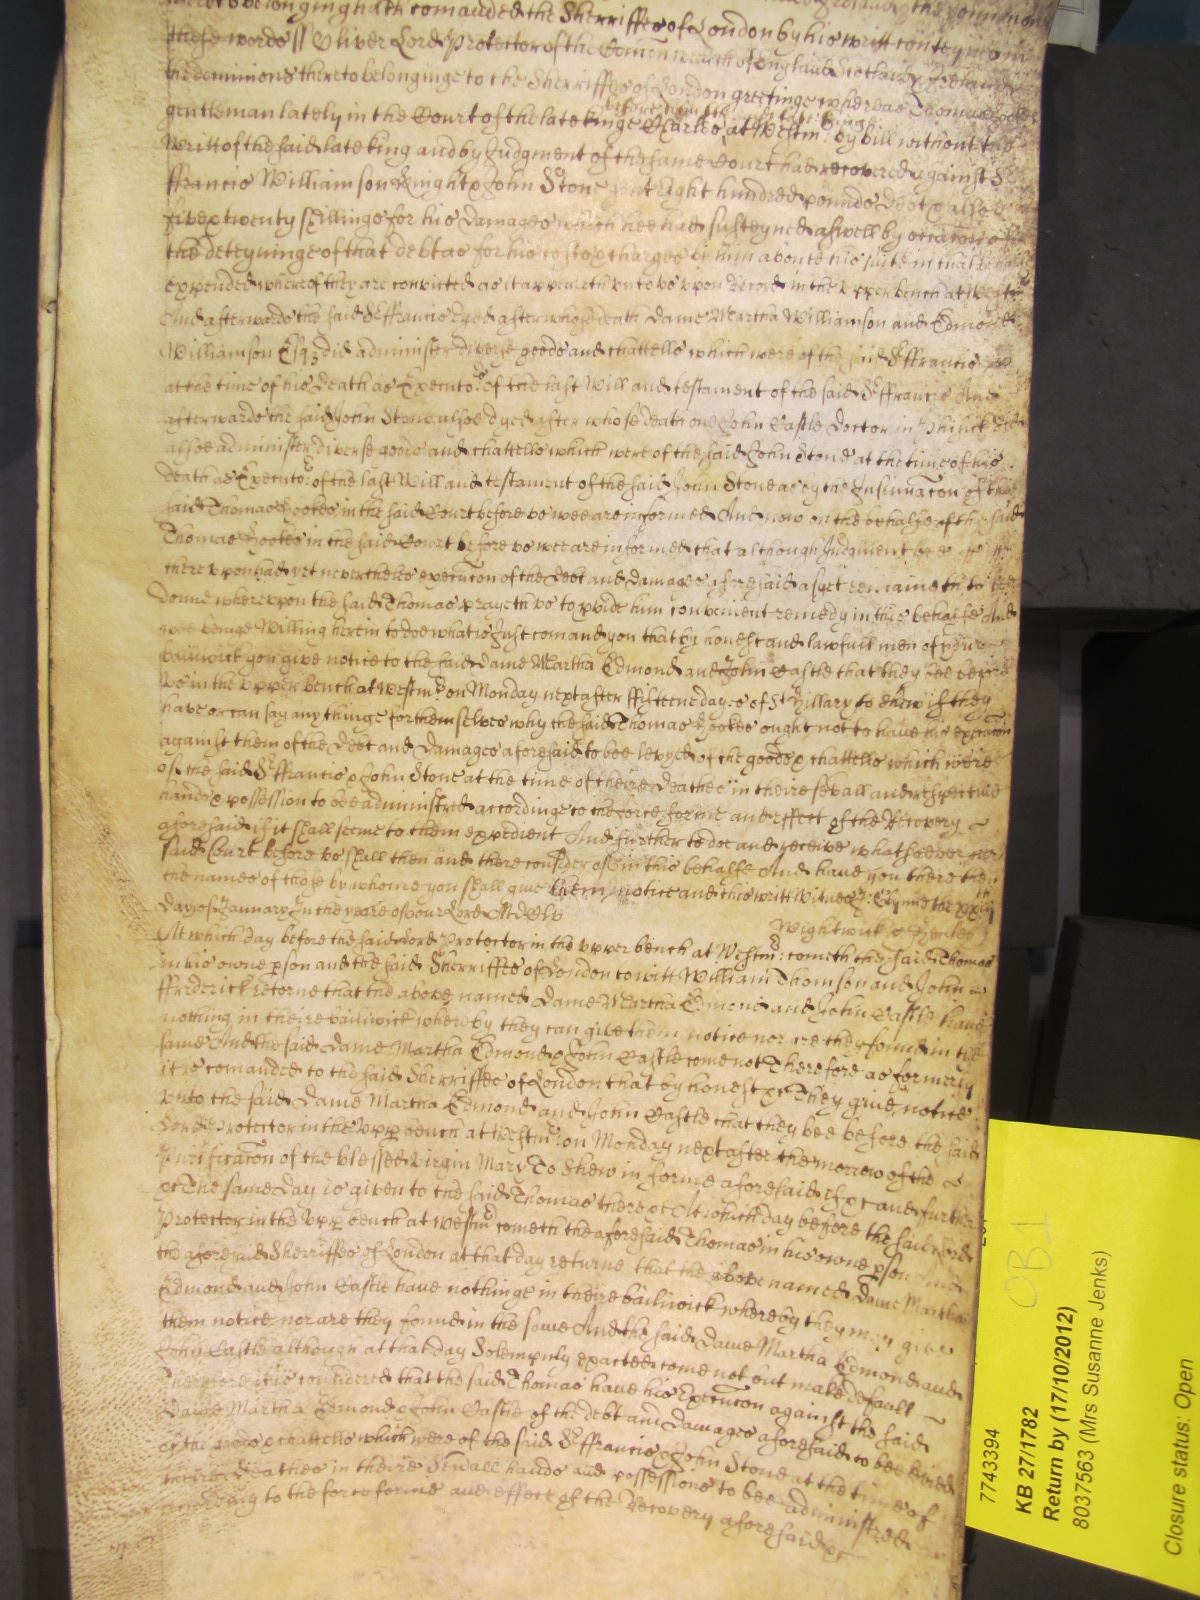 thereto belonging hath comanded the Sherriffes of London by his writt conteyneing
these words ss Oliver Lord Protector of the Comonwealth of England Scotland & Ireland
the dominions thereto belonginge to the Sherriffes of London greetinge whereas Thomas Hookes
before
gentleman lately in the Court of the late kinge Charles at Westm: by bill without the
Writt of the said late king and by Judgment of the same Court had recovered against Sr
ffrancis Williamson Knight & John Stone gent Eight hundred pounds Debt & alsoe
five & twenty shillings for his damages which hee had susteyned aswell by occasion of
the deteyninge of that debt as for his costs & charges by him aboute his suite in that behalf
expended whereof they are convicted as it appeareth unto us upon Record in the upper bench at Westm
And afterwards the said Sr ffrancis dyed after whose death Dame Martha Williamson and Edmond
Williamson Esqr did administer diverse goods and chattells which were of the said Sr ffrancis
at the time of his death as Executors of the last Will and testament of the said Sr ffrancis And
afterwards the said John Stone alsoe dyed after whose death one John Castle Doctor in Phisick did
alsoe administer diverse goods and chattells which were of the said John Stone at the time of his
death as Executor of the last Will and testament of the said John Stone as by the Insinuacon of the
said Thomas Hookes in the said Court before us wee are informed And now on the behalfe of the said
Thomas Hookes in the said Court before us wee are informed that although Judgment bee
thereupon had yet nevertheles execucon of the Debt and damages aforesaid as yet remaineth to bee
donne whereupon the said Thomas prayeth us to pvide him convenient remedy in this behalfe And
wee beinge Willing herein to doe what is Just comand you that by honest and lawfull men of your
bailiwick you give notice to the said Dame Martha Edmond and John Castle that they bee before
us in the upper bench at Westmr on Monday next after ffifteene dayes of St Hillary to shew if they
have or can say any thinge for themselves why the said Thomas Hookes ought not to have his execucon
against them of the Debt and damages aforesaid to bee levyed of the goods & chattells which were
of the said Sr ffrancis & John Stone at the time of theire deathes in theire sevall and respective
hands & possession to be administred accordinge to the force forme and effect of the Recovery
aforesaid if it shall seeme to them expedient And further to doe and receive whatsoever our
said Court before us shall then and there consider of in this behalfe And have you there then
the names of those by whome you shall give them notice and this writt Witnes J: Glynne the xxiijth
day of January In the yeare of our Lord MDCLv
Wightwick & Henley
At which day before the said Lord Protector in the upper bench at Westm: cometh the said Thomas
in his owne pson and the said Sherriffes of London to witt William Thomson and John
ffrederick retorne that the above named Dame Martha Edmond and John Castle have
nothing in theire bailiwick whereby they can give them notice nor are they found in the
same And the said Dame Martha Edmond & John Castle come not Therefore as formerly
it is comanded to the said Sherriffes of London that by honest &c They give notice
unto the said Dame Martha Edmond and John Castle that they bee before the said
Lord Protector in the upp bench at Westmr on Monday next after the morrow of the
Purificacon of the blessed Virgin Mary To Shew in forme aforesaid if &c and further
&c The same day is given to the said Thomas there &c At which day before the said Lord
Protector in the upp bench at Westmr cometh the aforesaid Thomas in his owne pson And
the aforesaid Sherriffes of London at that day returne that the above named Dame Martha
Edmond and John Castle have nothinge in theire bailiwick whereby they may give
them notice nor are they found in the same And the said Dame Martha Edmond and
John Castle although at that day Solempnly exacted come not but make default
Therefore it is considered that the said Thomas have his Execucon against the said
Dame Martha Edmond & John Castle of the debt and Damages aforesaid to bee levied
of the goods & chattells which were of the said Sr ffrancis & John Stone at the time of
theire Deathes in theire Sevall hands and possessions to bee administred
according to the force forme and effect of the Recovery aforesaid &c
OB1
7743394
KB 27/1782
Return by (17/10/2012)
8037563 (Mrs Susanne Jenks)
Closure status: Open